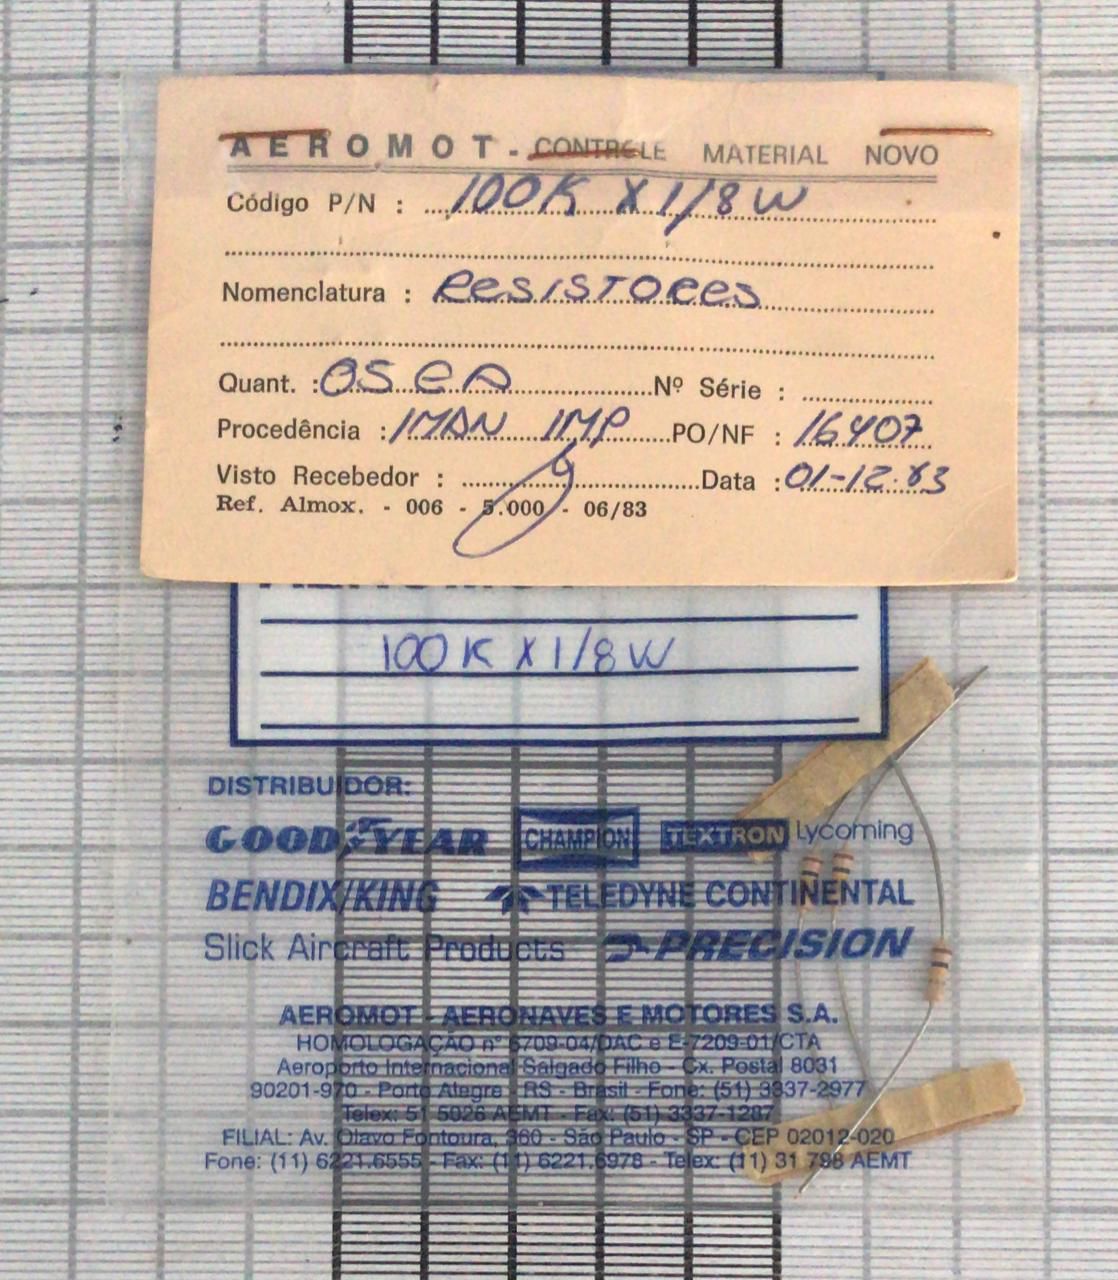 AEROMOT - CONTROLE MATERIAL NOVO
Código P/N : 100K X 1/8 W
Nomenclatura : RESISTORES
Quant. : 05 EA Nº Série :
Procedência : IMAN IMP PO/NF : 16407
Visto Recebedor : Data : 01-12-83
Ref. Almox. - 006 - 5.000 - 06/83
100K X 1/8 W
DISTRIBUIDOR:
GOODYEAR CHAMPION TEXTRON Lycoming
BENDIX/KING TELEDYNE CONTINENTAL
Slick Aircraft Products PRECISION
AEROMOT - AERONAVES E MOTORES S.A.
HOMOLOGAÇÃO nº 6709-04/DAC e E-7209-01/CTA
Aeroporto Internacional Salgado Filho - Cx. Postal 8031
90201-970 - Porto Alegre - RS - Brasil - Fone: (51) 3337-2977
Telex: 51 5026 AEMT - Fax: (51) 3337-1287
FILIAL: Av. Olavo Fontoura, 360 - São Paulo - SP - CEP 02012-020
Fone: (11) 6221.6555 - Fax: (11) 6221.6978 - Telex: (11) 31 798 AEMT